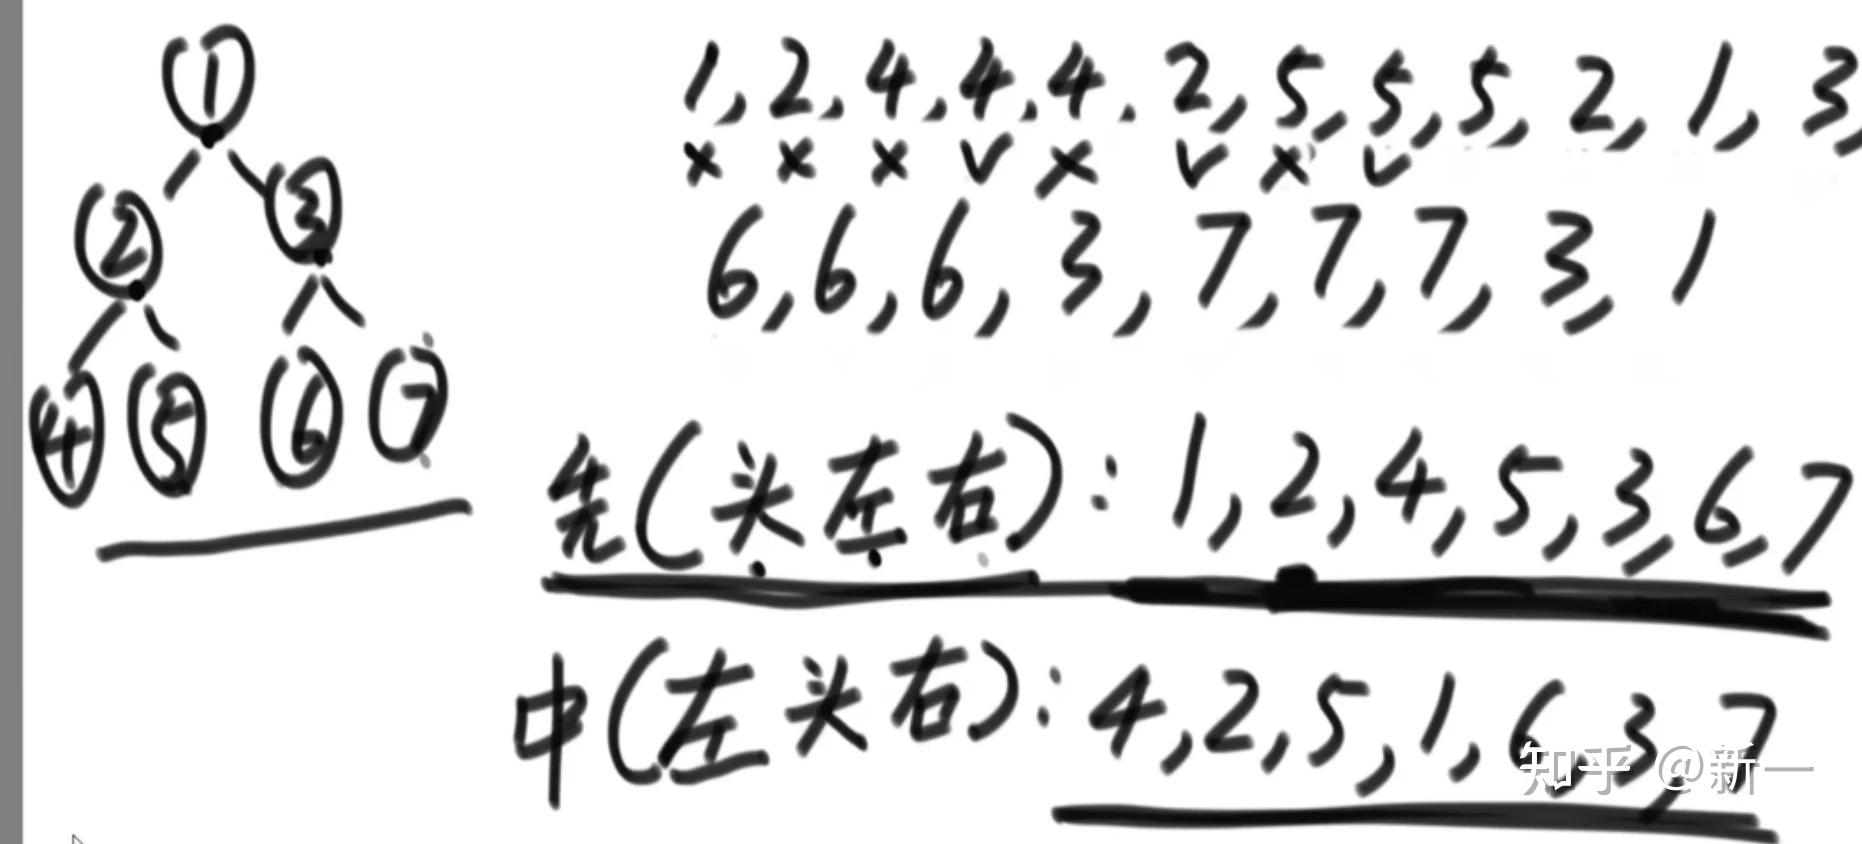 1
2 3
4 5 6 7
1, 2, 4, 4, 4, 2, 5, 5, 5, 2, 1, 3,
x x x v x v x v
6, 6, 6, 3, 7, 7, 7, 3, 1
先(头左右): 1, 2, 4, 5, 3, 6, 7
中(左头右): 4, 2, 5, 1, 6, 3, 7
知乎 @新一